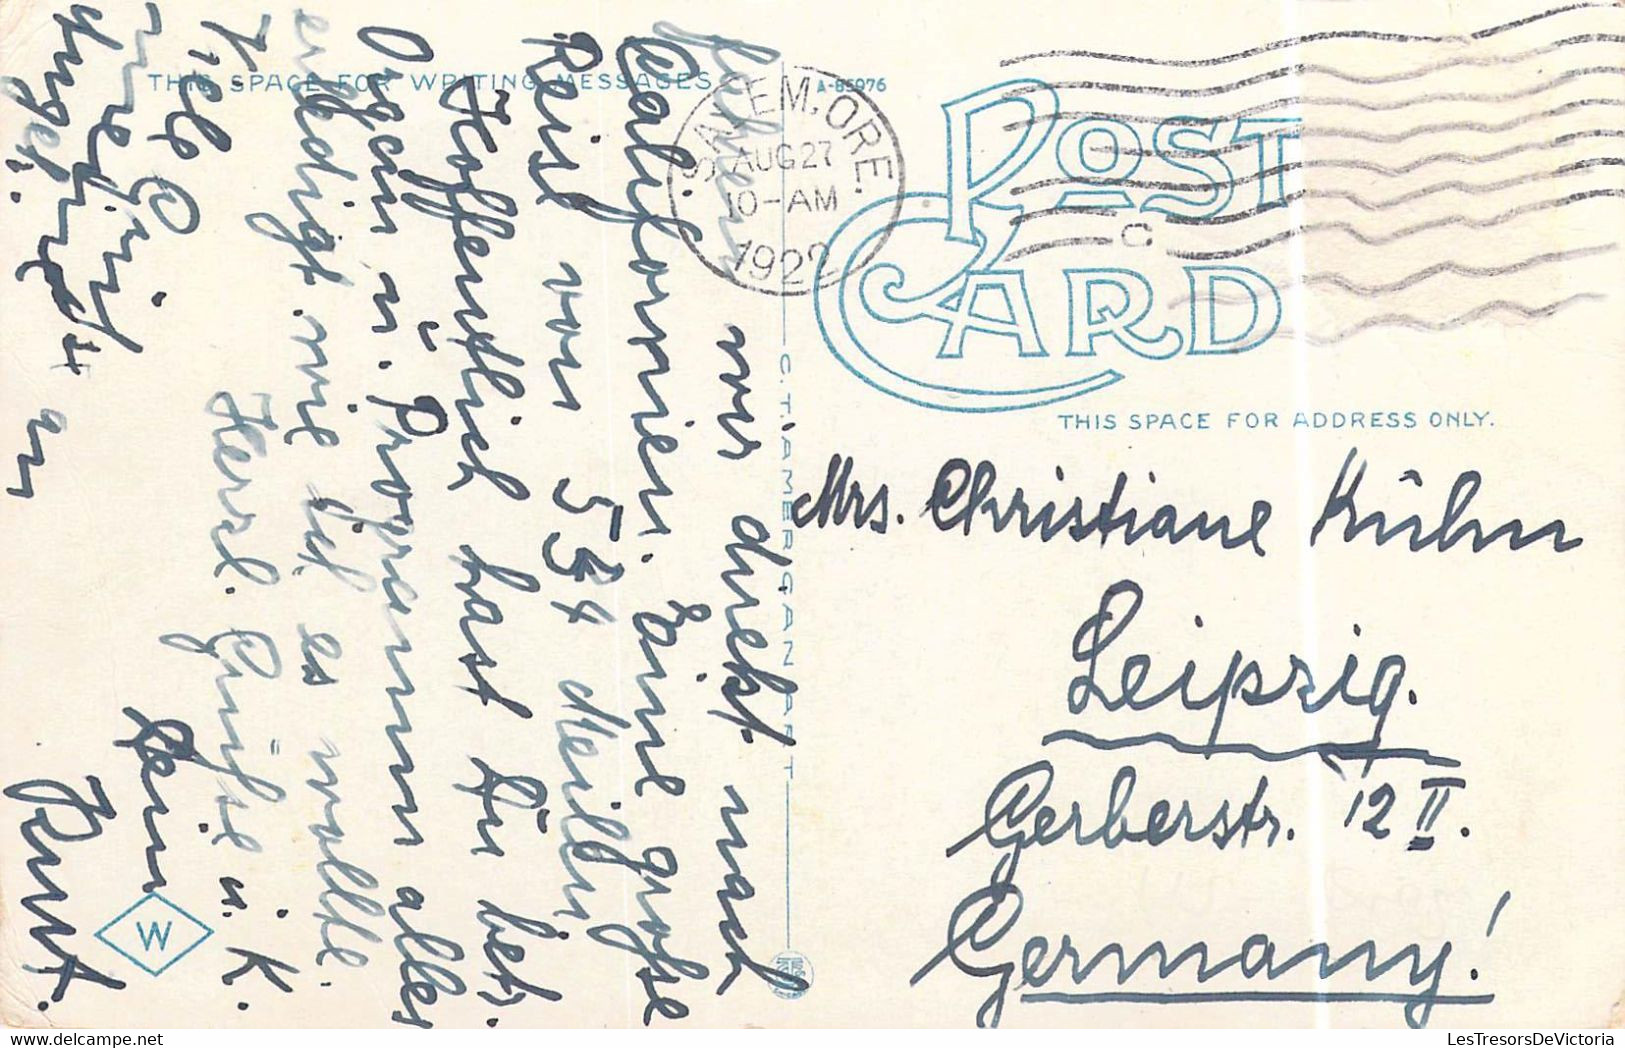 THIS SPACE FOR WRITING MESSAGES
A-85976
SALEM, ORE.
AUG 27
10-AM
1922
POST
CARD
THIS SPACE FOR ADDRESS ONLY.
C. T. AMERICAN ART
W
Mrs. Christiane Kühn
Leipzig.
Gerberstr. 12 II.
Germany!
wir direkt nach
Californien. Eine grosse
Reise von 554 Meilen
Hoffentlich hast Du betr.
Organ u. Programm alles
erledigt wie ich es wollte.
Herzl. Grüsse u. K.
Dein
Kurt.
LesTresorsDeVictoria.com